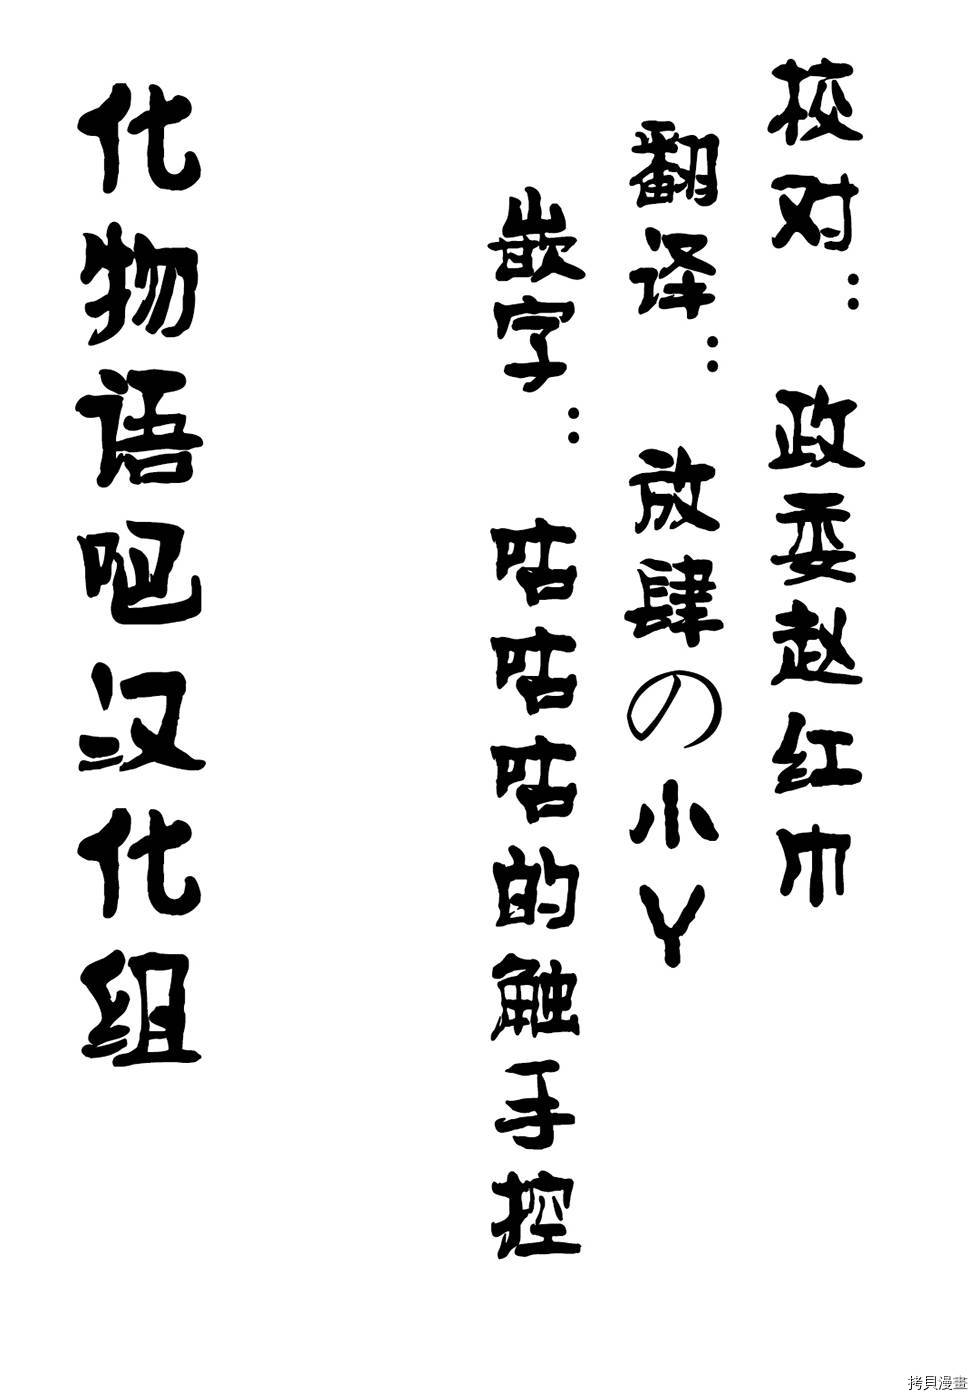 校对：政委赵红巾
翻译：放肆の小Y
嵌字：咕咕咕的触手控
化物语吧汉化组
拷貝漫畫